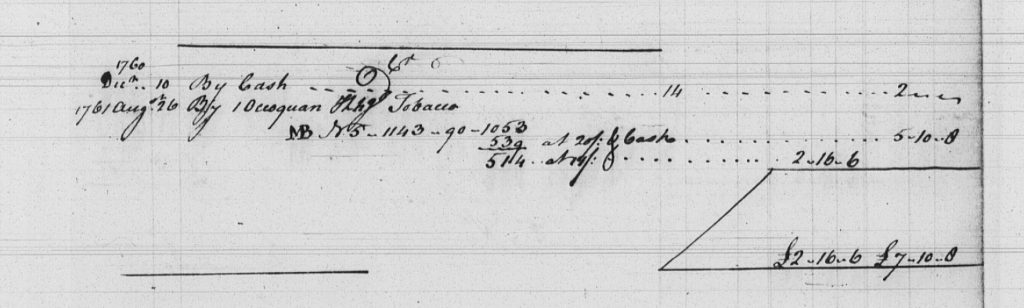 Cr
1760
Decr. 10 By Cash 14 2 " " "
1761 Augst. 26 By 1 Occoquan Tobacco
MB No 5 - 1143 - 90 - 1053
539 at 20/. Cash 5 - 10 - 8
514 at 2 - 16 - 6
£2 - 16 - 6 £7 - 10 - 8